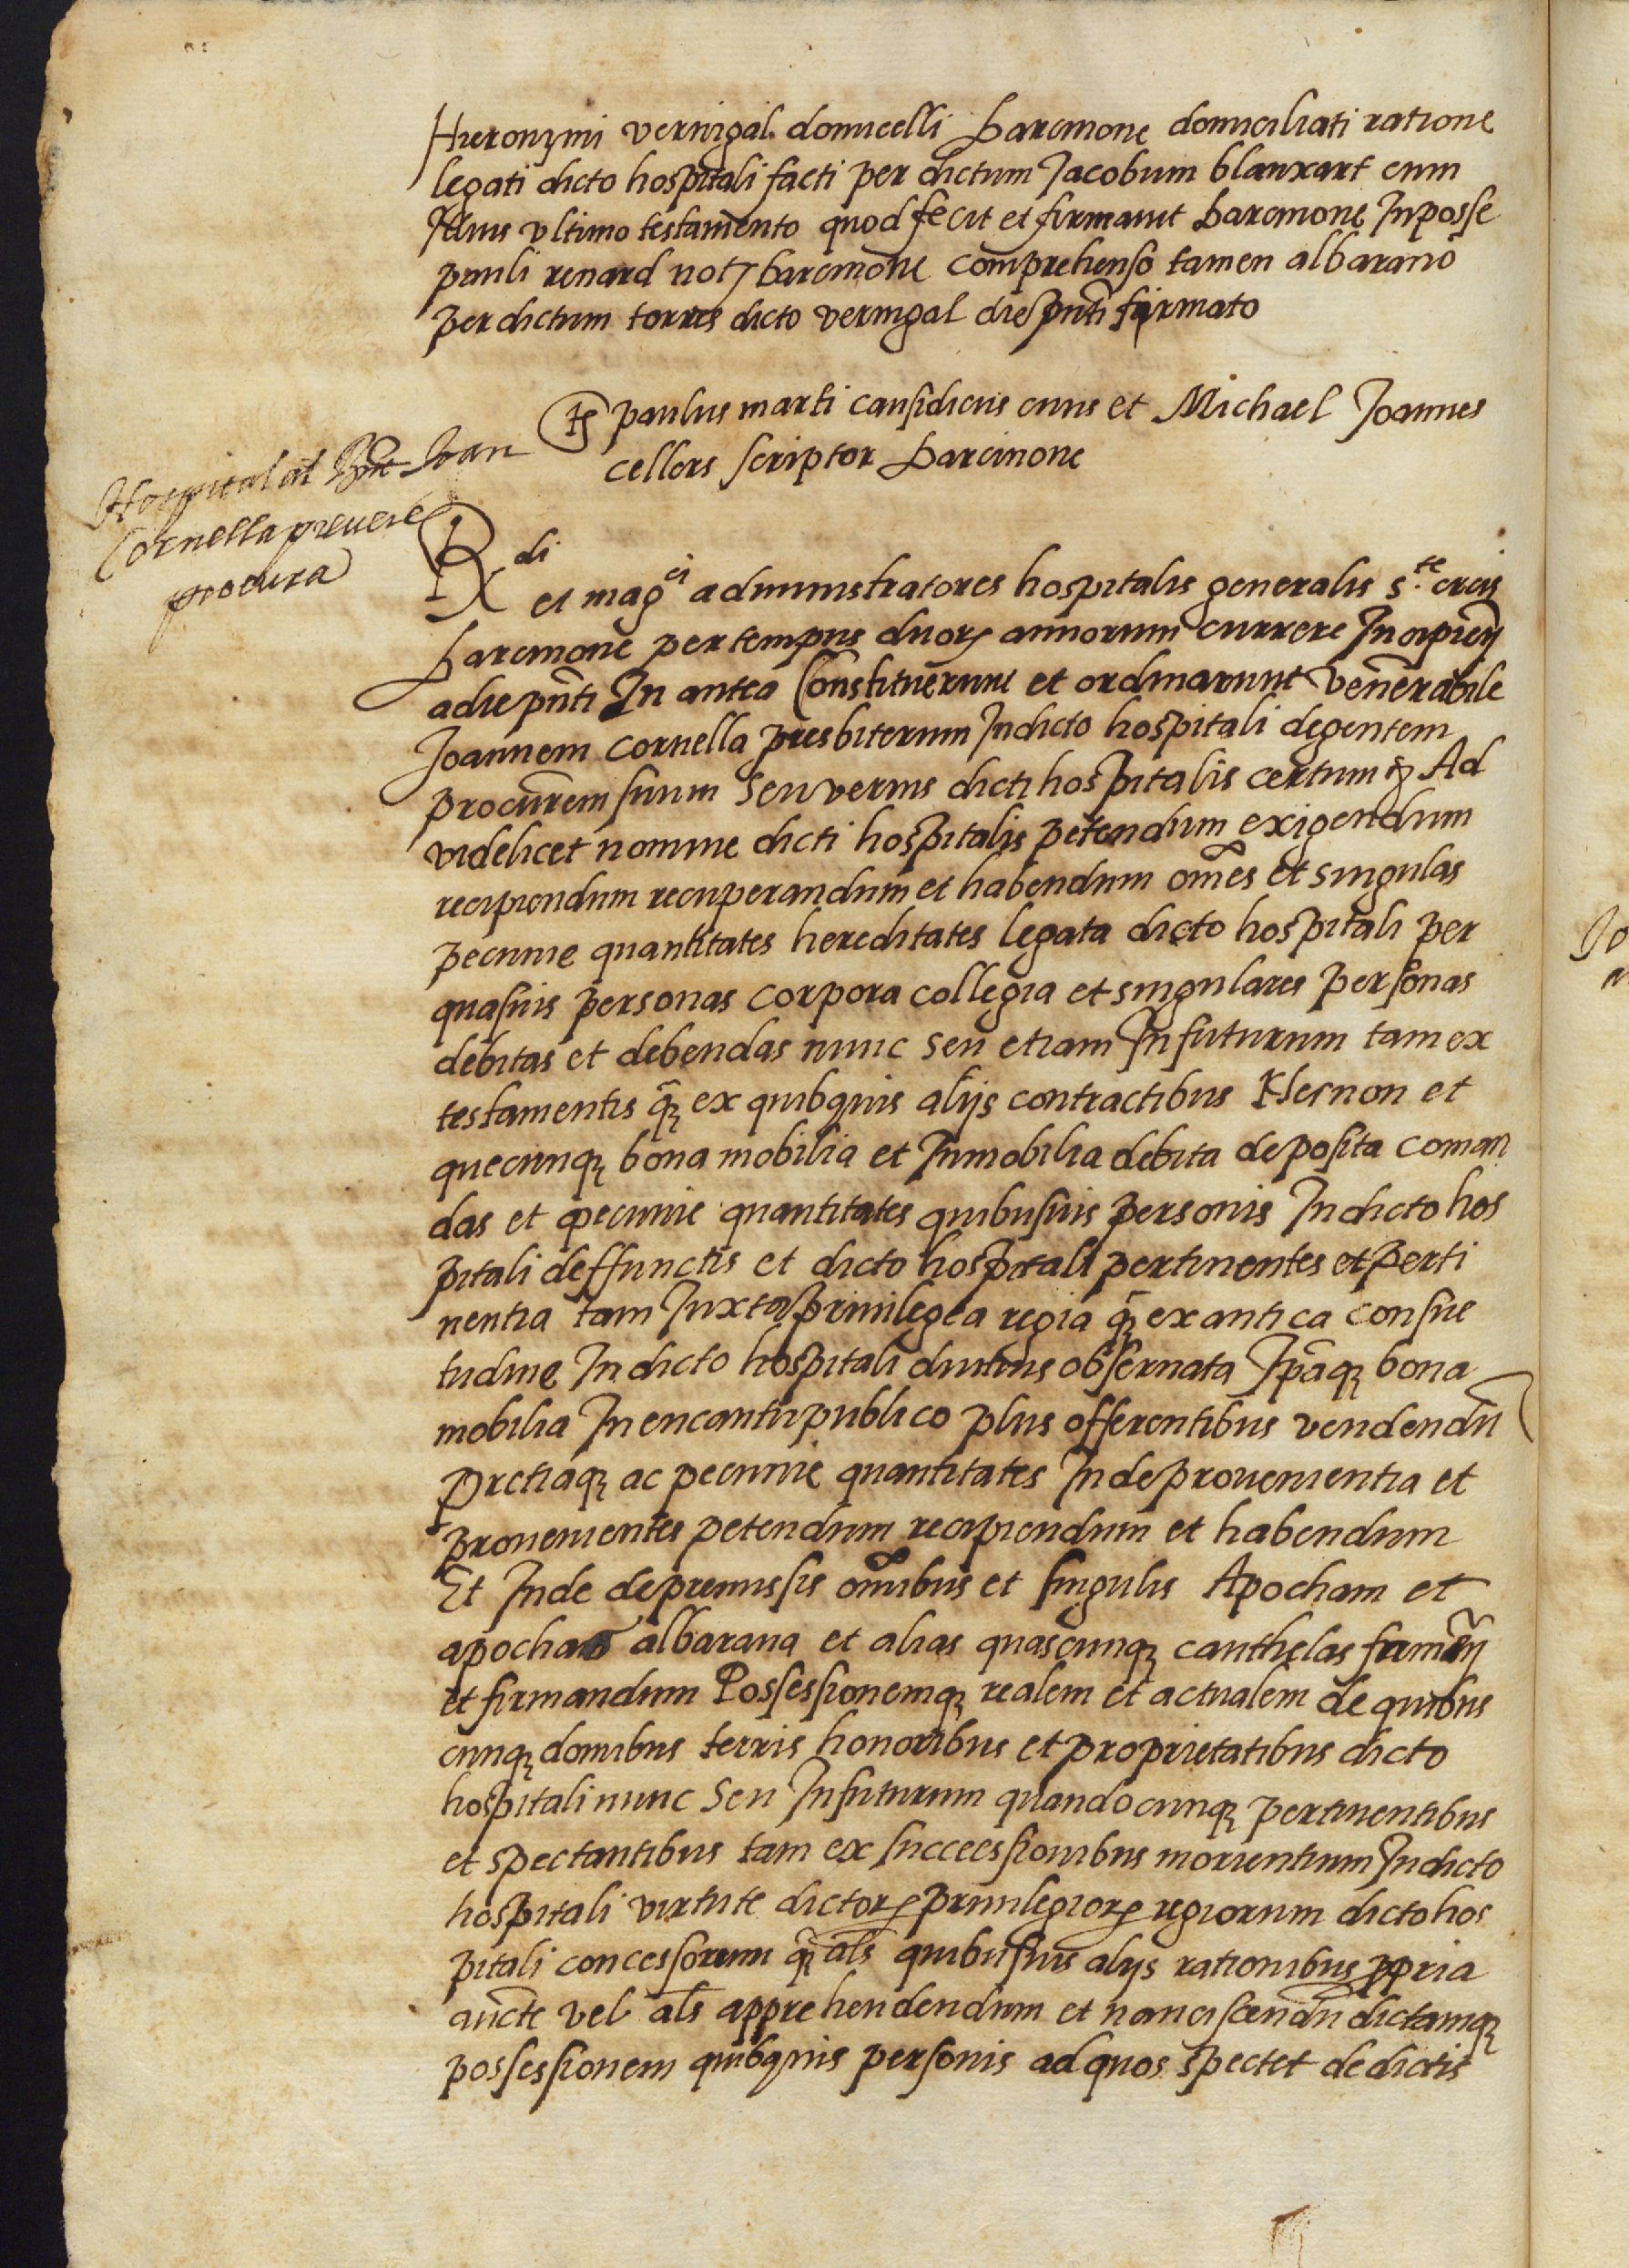 Hieronymi vernigal domicelli barcinone domiciliati ratione
legati dicto hospitali facti per dictum Jacobum blanxart cum
suo ultimo testamento quod fecit et firmavit barcinone In posse
pauli renard notꝫ barcinone comprehenso tamen albarano
per dictum torres dicto vernigal die pñti firmato
Tꝭ paulus marti causidicus civis et Michael Joannes
cellers scriptor barcinone
Hospital al Joan
Cornella prevere
procura
Rdi et magci administratores hospitalis generalis s.te crucis
barcinone per tempus duorꝝ annorum currere Incipieñ
a die pñti In antea Constituerunt et ordinarunt venerabile
Joannem cornella presbiterum In dicto hospitali degentem
procurem suum seu verius dicti hospitalis certum ꝫ Ad
videlicet nomine dicti hospitalis petendum exigendum
recipiendum recuperandum et habendum omes et singulas
pecunie quantitates hereditates legata dicto hospitali per
quasvis personas corpora collegia et singulares personas
debitas et debendas nunc seu etiam In futurum tam ex
testamentis qꝫ ex quibusvis alijs contractibus Necnon et
quecunqꝫ bona mobilia et Inmobilia debita deposita coman
das et pecunie quantitates quibusvis personis In dicto hos
pitali deffunctis et dicto hospitali pertinentes et perti
nentia tam Juxta privilegea regia qꝫ ex antica consue
tudine In dicto hospitali diutius observata Ipãqꝫ bona
mobilia In encantu publico plus offerentibus vendendũ
Pretiaqꝫ ac pecunie quantitates Inde provenientia et
provenientes petendum recipiendum et habendum
Et Inde de premissis omibus et singulis Apocham et
apochas albarana et alias quascunqꝫ cauthelas
et firmandum Possessionemqꝫ realem et actualem de quibus
cunqꝫ domibus terris honoribus et proprietatibus dicto
hospitali nunc seu In futurum quandocunqꝫ pertinentibus
et spectantibus tam ex successionibus morientium In dicto
hospitali virtute dictorꝝ privilegiorꝝ regiorum dicto hos
pitali concessorum qꝫ als quibusvis alijs rationibus ꝓpria
aucte vel als apprehendendum et nanciscendũ dictamqꝫ
possessionem quibusvis personis ad quos spectet de dictis